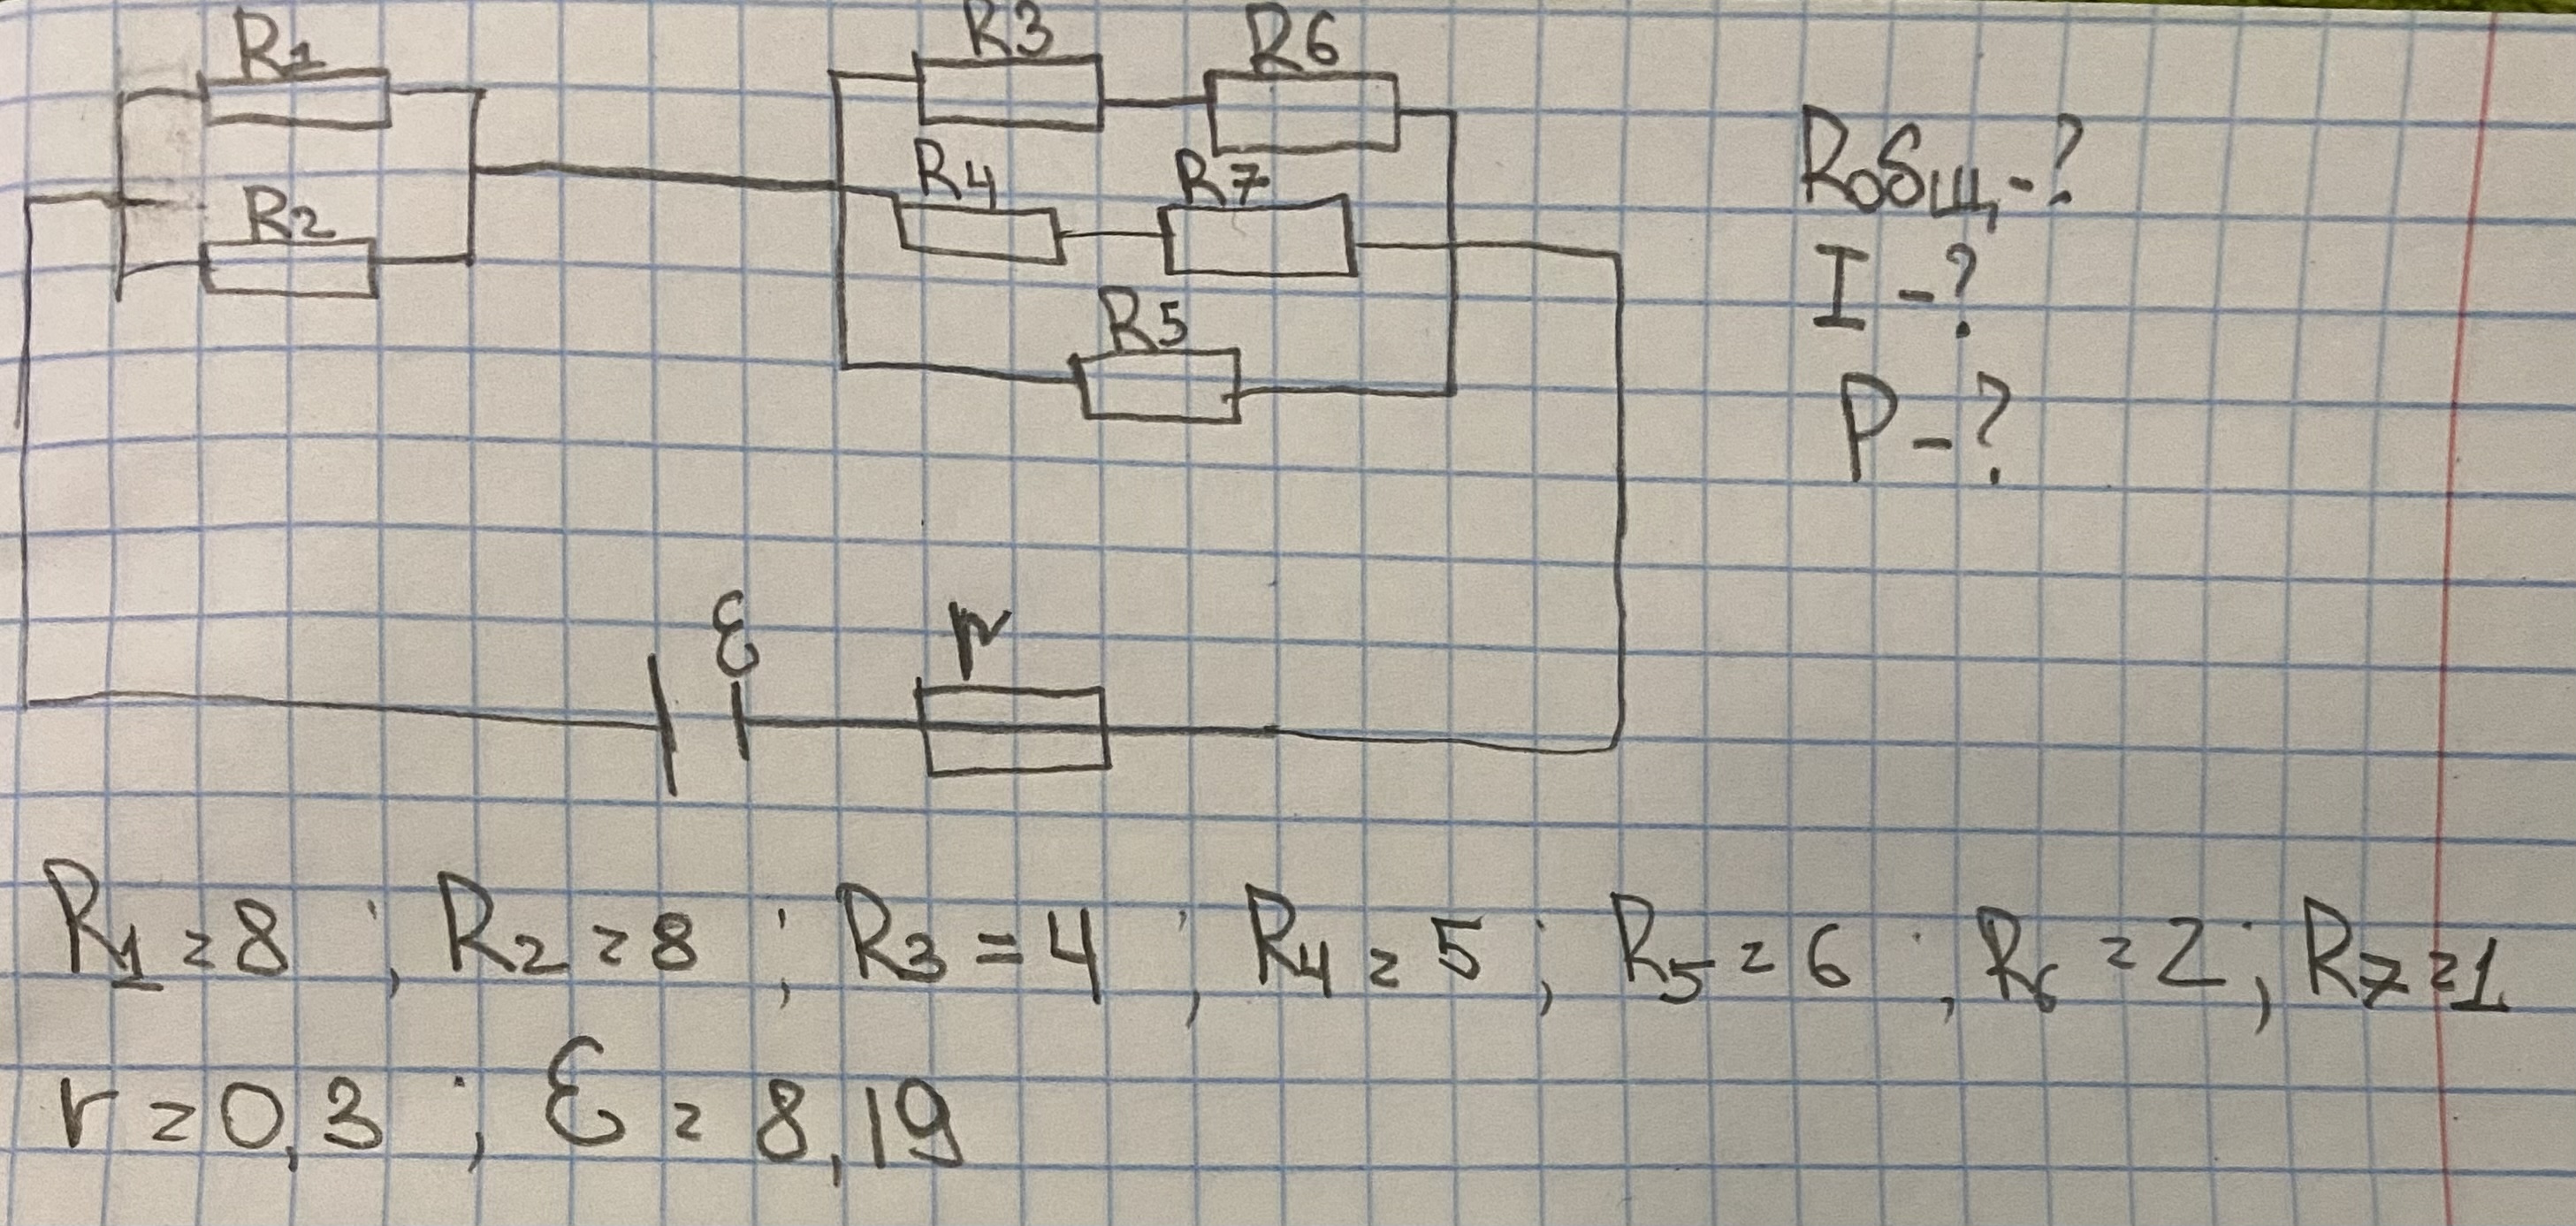 R1
R2
R3 R6
R4 R7
R5
Rобщ-?
I-?
P-?
ε
r
R1=8 ; R2=8 ; R3=4 ; R4=5 ; R5=6 ; R6=2 ; R7=1
r=0,3 ; ε=8,19